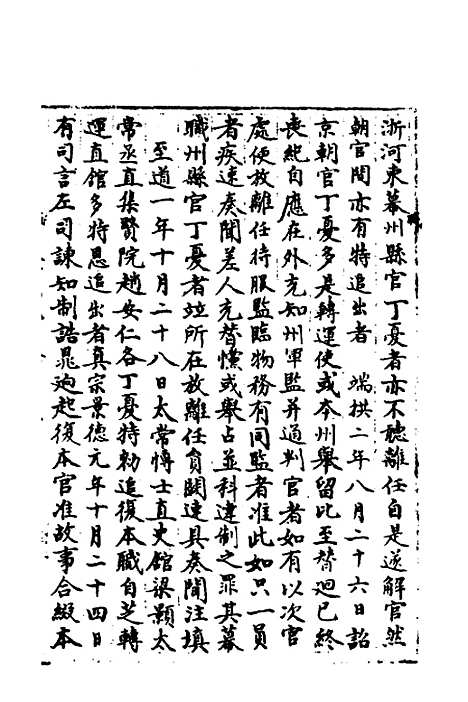 浙河東幕州縣官丁憂者亦不聽離任自是遂解官然
朝官間亦有特追出者　端拱二年八月二十六日詔
京朝官丁憂多是轉運使或本州舉留此至替迴已終
喪紀自應在外充知州軍監并通判官者如有以次官
處便放離任持服監臨物務有同監者准此如只一員
者疾速奏聞差人充替儻或舉占並科違制之罪其幕
職州縣官丁憂者竝所在放離任負闕速具奏聞注填
至道一年十月二十八日太常博士直史館梁顥太
常丞直集賢院趙安仁各丁憂特勑追復本職自芝轉
運直館多特恩追出者真宗景德元年十月二十四日
有司言左司諫知制誥晁迥起復本官准故事合綴本